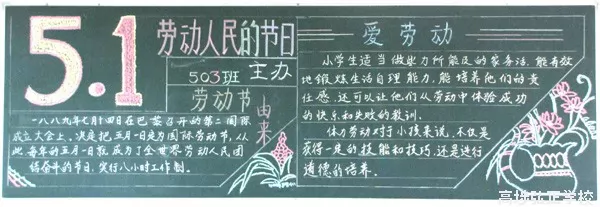 5.1
劳动人民的节日
503班 主办
劳动节
由来
一八八九年七月十四日在巴黎召开的第二国际
成立大会上，决定把五月一日定为国际劳动节，从
此，每年的五月一日就成为了全世界劳动人民团
结奋斗的节日，实行八小时工作制。
爱劳动
小学生适当做些力所能及的家务活，能有效
地锻炼生活自理能力，能培养他们的责
任感，还可以让他们从劳动中体验成功
的快乐和失败的教训。
体力劳动对于小孩来说，不仅是
获得一定的技能和技巧，还是进行
道德的培养。